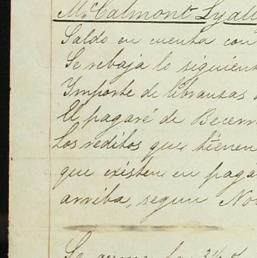 McCalmont Lyall
Saldo en cuenta con
Se rebaja lo siguien
Importe de libranzas
El pagaré de Becerr
Los réditos que tienen
que existen en paga
arriba, segun No
Se